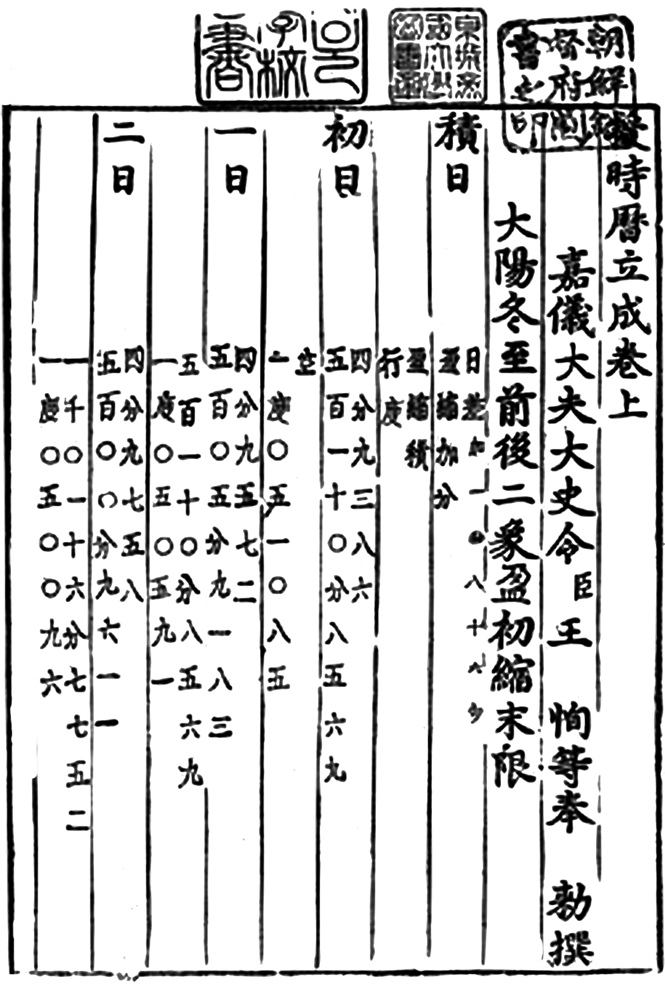 朝鮮總
督府圖
書之印
授時暦立成卷上
嘉儀大夫大史令臣王 恂等奉 勅撰
大陽冬至前後二象盈初縮末限
積日
日差加一
盈縮加分
盈縮積
行度
初日
四分九三八六
五百一十〇分八五六九
空
一度〇五一〇八五
一日
四分九五七二
五百〇五分九一八三
五百一十〇分八五六九
一度〇五〇五九一
二日
四分九七五八
五百〇〇分九六一一
一千〇一十六分七七五二
一度〇五〇〇九六